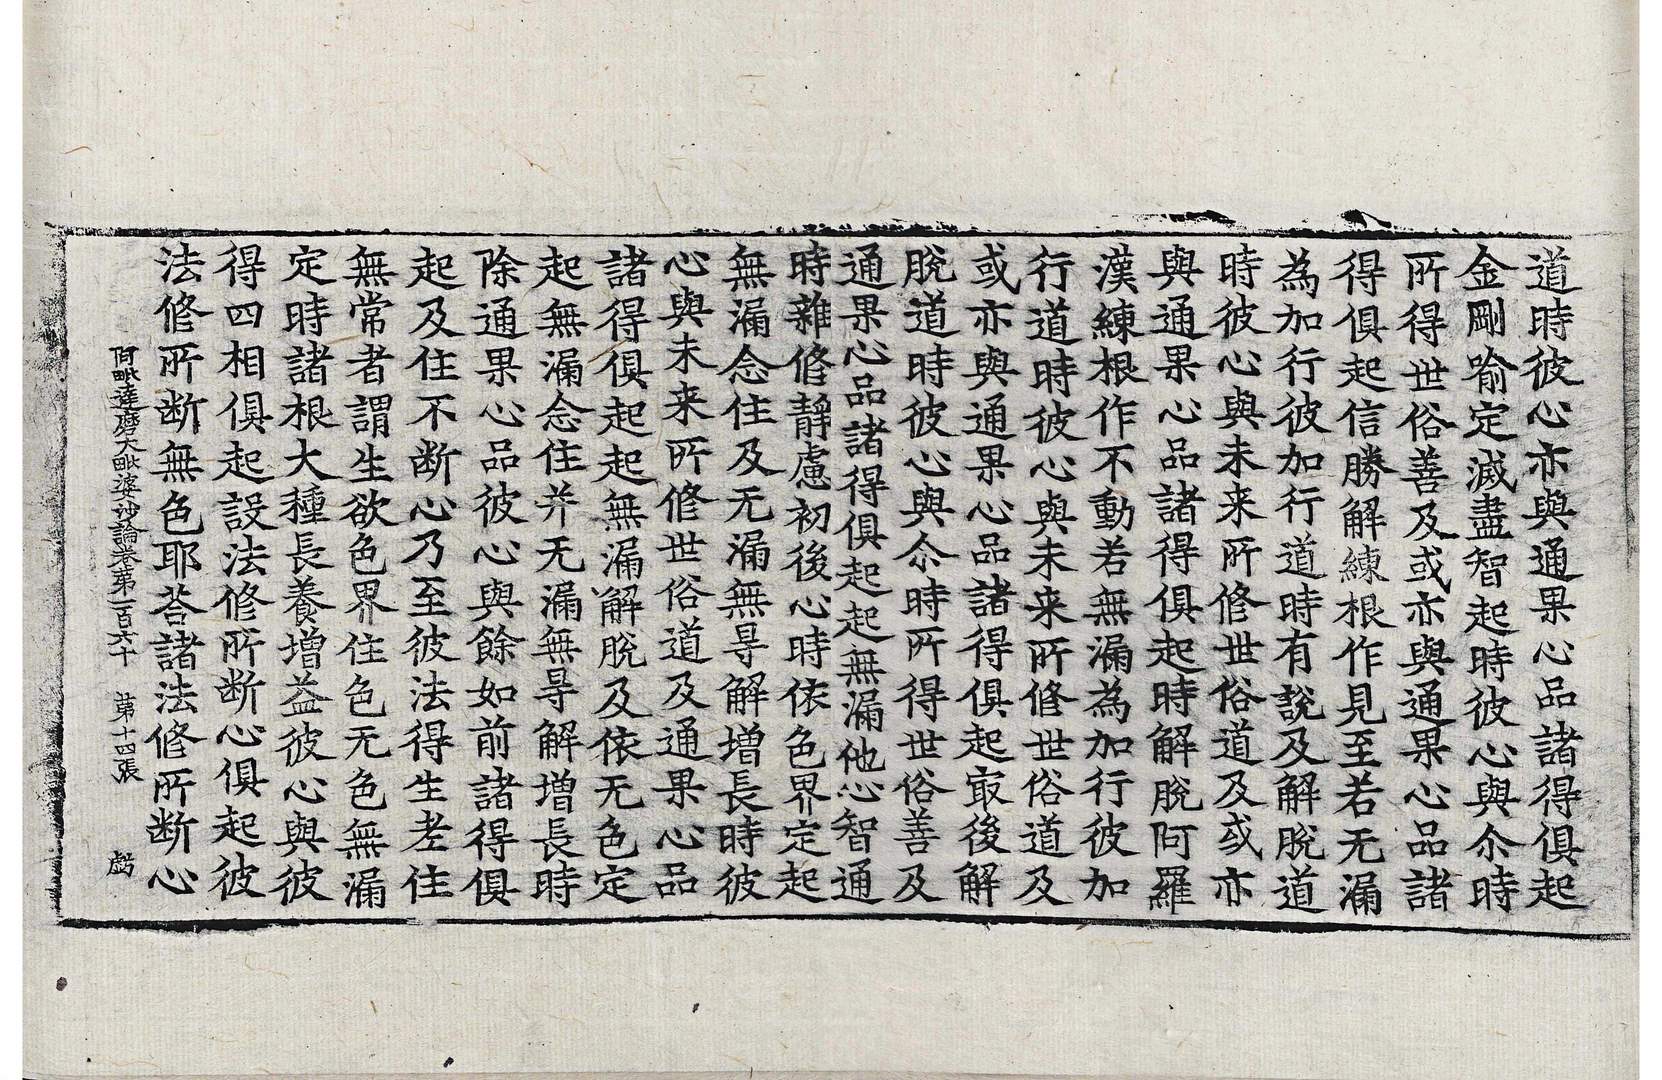 道時彼心亦與通果心品諸得俱起
金剛喻定滅盡智起時彼心與尒時
所得世俗善及或亦與通果心品諸
得俱起信勝解練根作見至若无漏
為加行彼加行道時有說及解脫道
時彼心與未来所修世俗道及或亦
與通果心品諸得俱起時解脫阿羅
漢練根作不動若無漏為加行彼加
行道時彼心與未来所修世俗道及
或亦與通果心品諸得俱起㝡後解
脫道時彼心與尒時所得世俗善及
通果心品諸得俱起起無漏他心智通
時雜修靜慮初後心時依色界定起
無漏念住及无漏無㝵解增長時彼
心與未来所修世俗道及通果心品
諸得俱起起無漏解脫及依无色定
起無漏念住并无漏無㝵解增長時
除通果心品彼心與餘如前諸得俱
起及住不断心乃至彼法得生老住
無常者謂生欲色界住色无色無漏
定時諸根大種長養增益彼心與彼
得四相俱起設法修所断心俱起彼
法修所断無色耶荅諸法修所断心
阿毗達磨大毗婆沙論卷第一百六十 第十四張